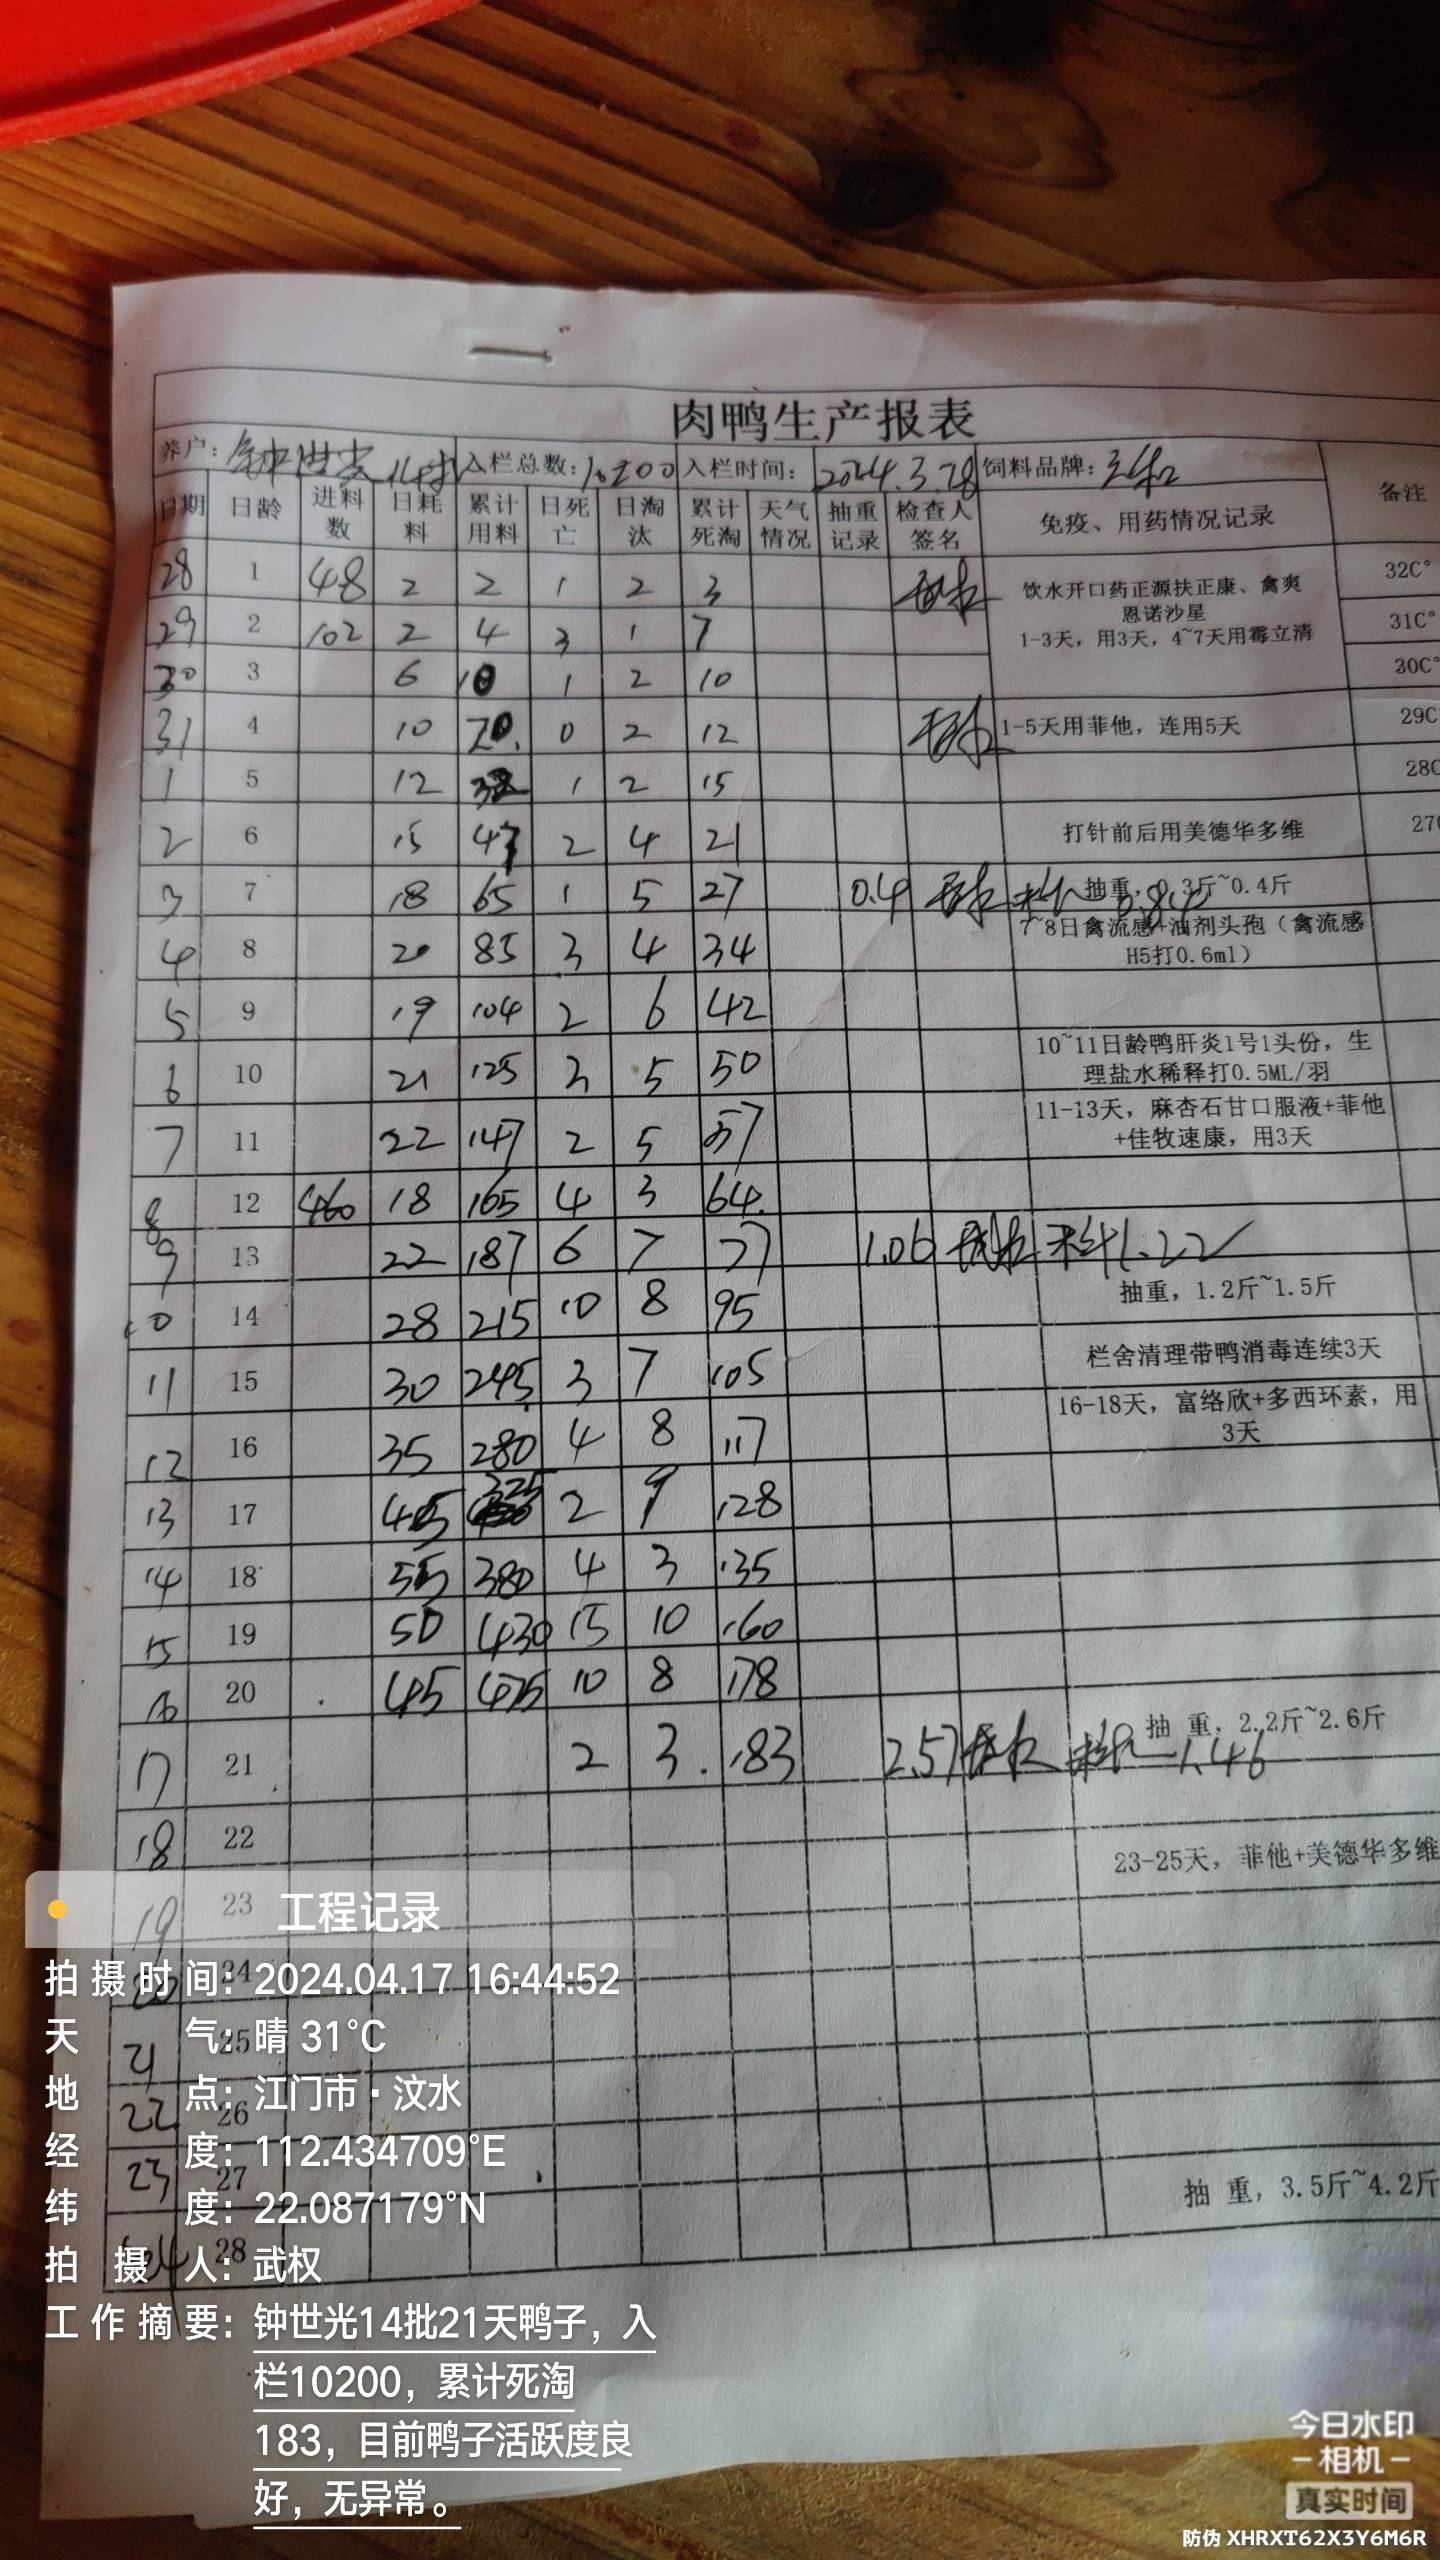 肉鸭生产报表
养户: 钟世光 14批 入栏总数: 10200 入栏时间: 2024.3.28 饲料品牌:
日期 日龄 进料数 日耗料 累计用料 日死亡 日淘汰 累计死淘 天气情况 抽重记录 检查人签名 免疫、用药情况记录 备注
28 1 48 2 2 1 2 3 饮水开口药正源扶正康、禽爽 32C°
恩诺沙星
29 2 102 2 4 3 1 7 1-3天，用3天，4~7天用霉立清 31C°
30 3 6 10 1 2 10 30C°
31 4 10 20 0 2 12 1-5天用菲他，连用5天 29C
1 5 12 32 1 2 15 28C
2 6 15 47 2 4 21 打针前后用美德华多维 27C
3 7 18 65 1 5 27 0.4 抽重，0.3斤~0.4斤
4 8 20 85 3 4 34 7~8日禽流感+油剂头孢（禽流感
H5打0.6ml）
5 9 19 104 2 6 42
6 10 21 125 3 5 50 10~11日龄鸭肝炎1号1头份，生
理盐水稀释打0.5ML/羽
7 11 22 147 2 5 57 11-13天，麻杏石甘口服液+菲他
+佳牧速康，用3天
8 12 460 18 165 4 3 64
9 13 22 187 6 7 77 1.06 料比1.22
10 14 28 215 10 8 95 抽重，1.2斤~1.5斤
11 15 30 245 3 7 105 栏舍清理带鸭消毒连续3天
12 16 35 280 4 8 117 16-18天，富络欣+多西环素，用
3天
13 17 45 325 2 9 128
14 18 55 380 4 3 135
15 19 50 430 15 10 160
16 20 45 475 10 8 178
17 21 2 3 183 2.57 抽 重，2.2斤~2.6斤
料比 1.46
18 22
19 23 23-25天，菲他+美德华多维
20 24
21 25
22 26
23 27
24 28 抽 重，3.5斤~4.2斤
工程记录
拍摄时间: 2024.04.17 16:44:52
天气: 晴 31°C
地点: 江门市·汶水
经度: 112.434709°E
纬度: 22.087179°N
拍摄人: 武权
工作摘要: 钟世光14批21天鸭子，入
栏10200，累计死淘
183，目前鸭子活跃度良
好，无异常。
今日水印
-相机-
真实时间
防伪 XHRXT62X3Y6M6R